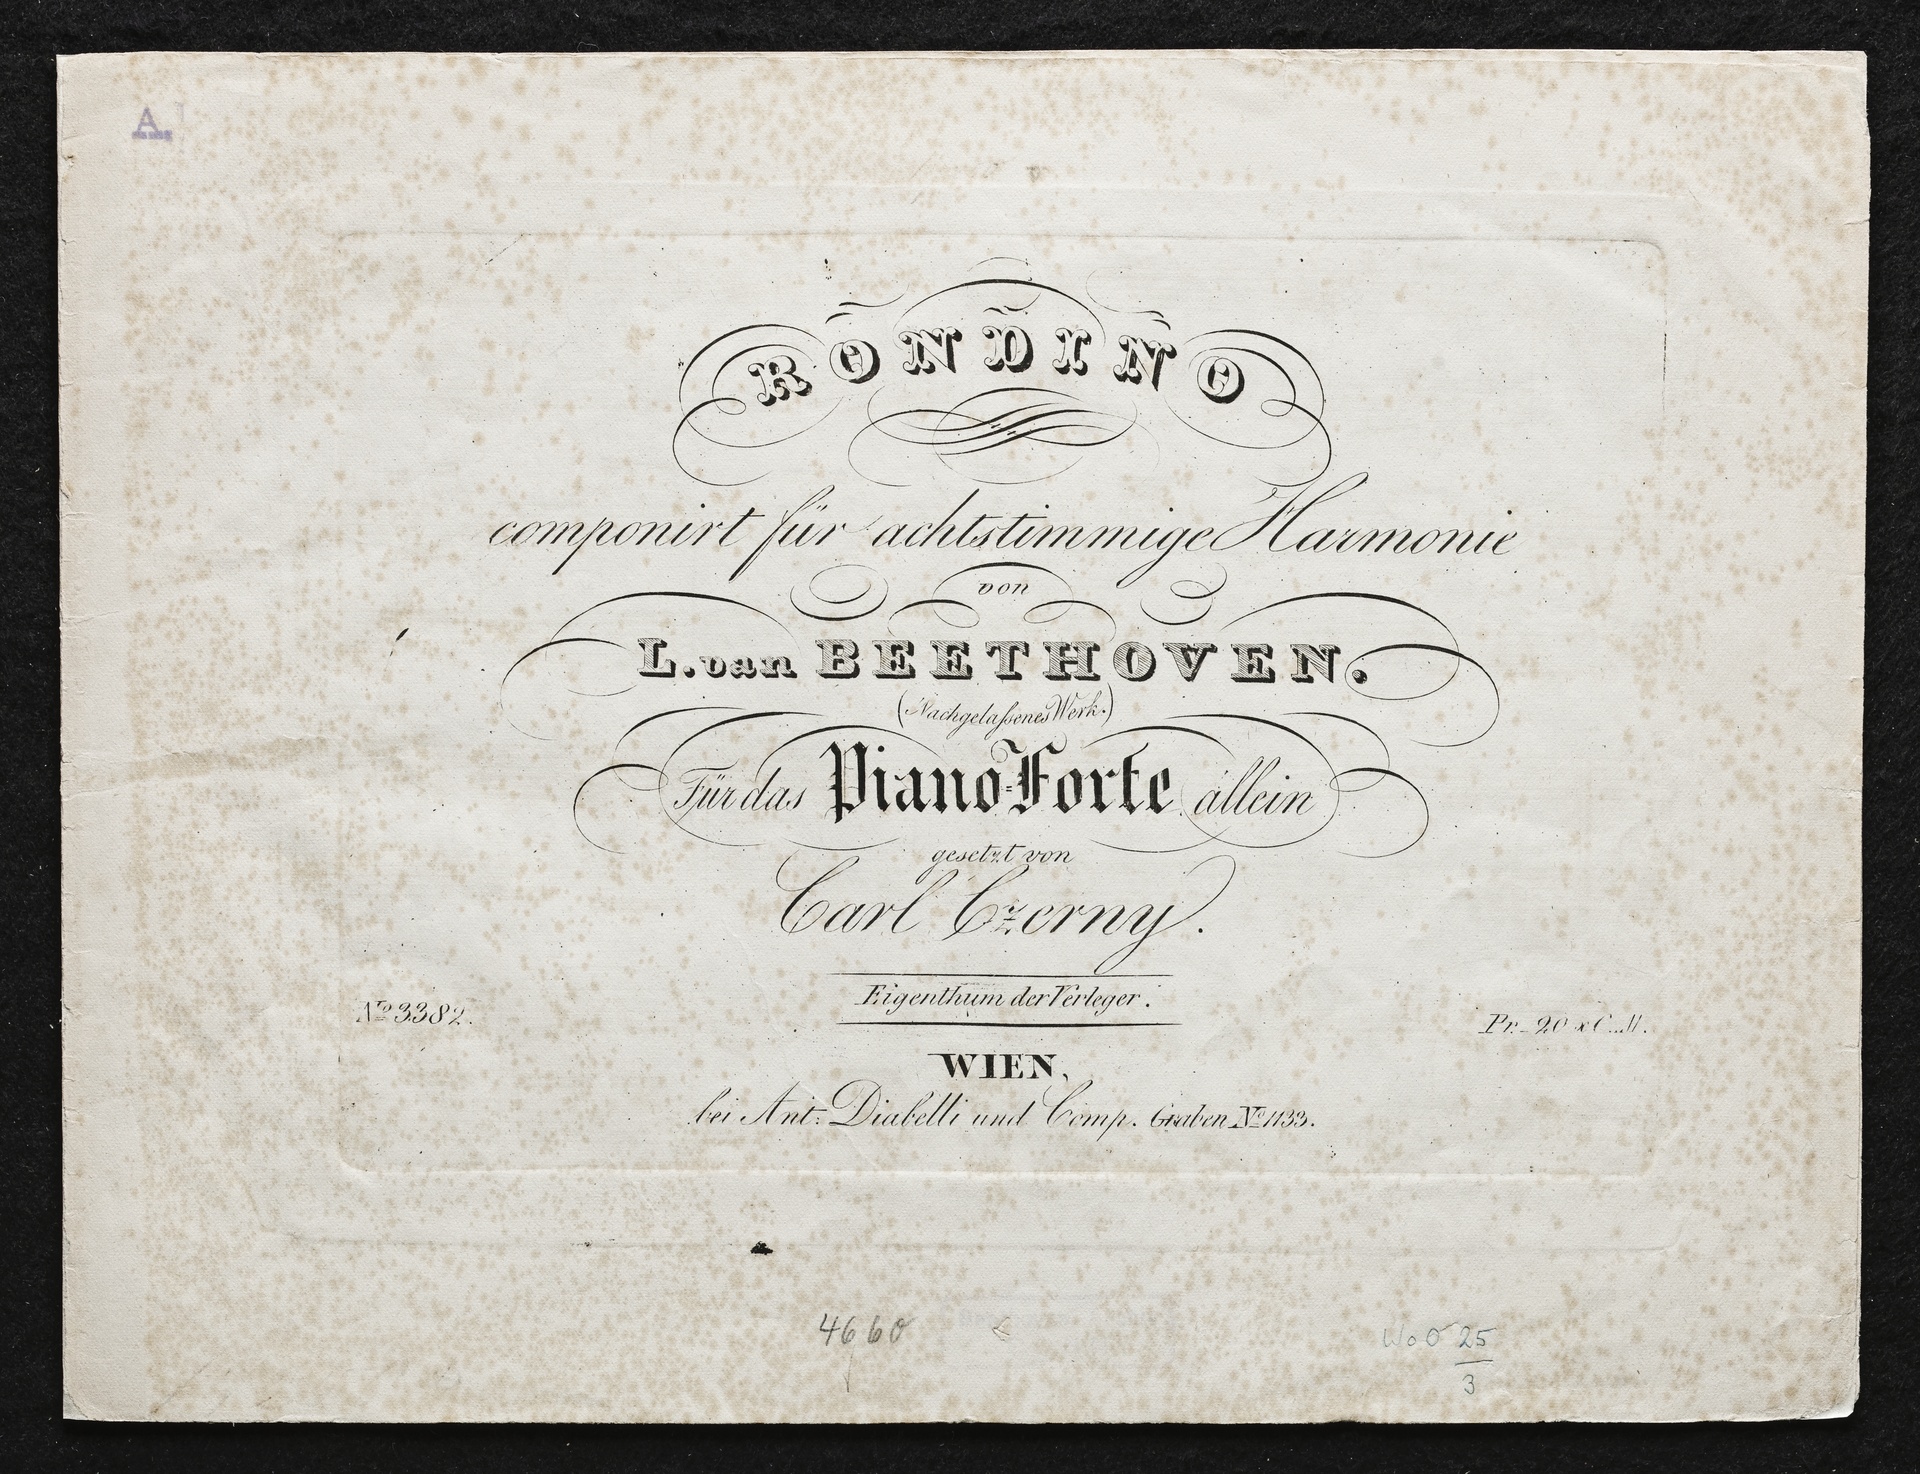 A.
RONDINO
componirt für achtstimmige Harmonie
von
L. van BEETHOVEN.
(Nachgelaßenes Werk.)
Für das Piano=Forte allein
gesetzt von
Carl Czerny.
Eigenthum der Verleger.
No 3382.
Pr. 20 x C.M.
WIEN,
bei Ant: Diabelli und Comp. Graben No 1133.
4660
WoO 25
3